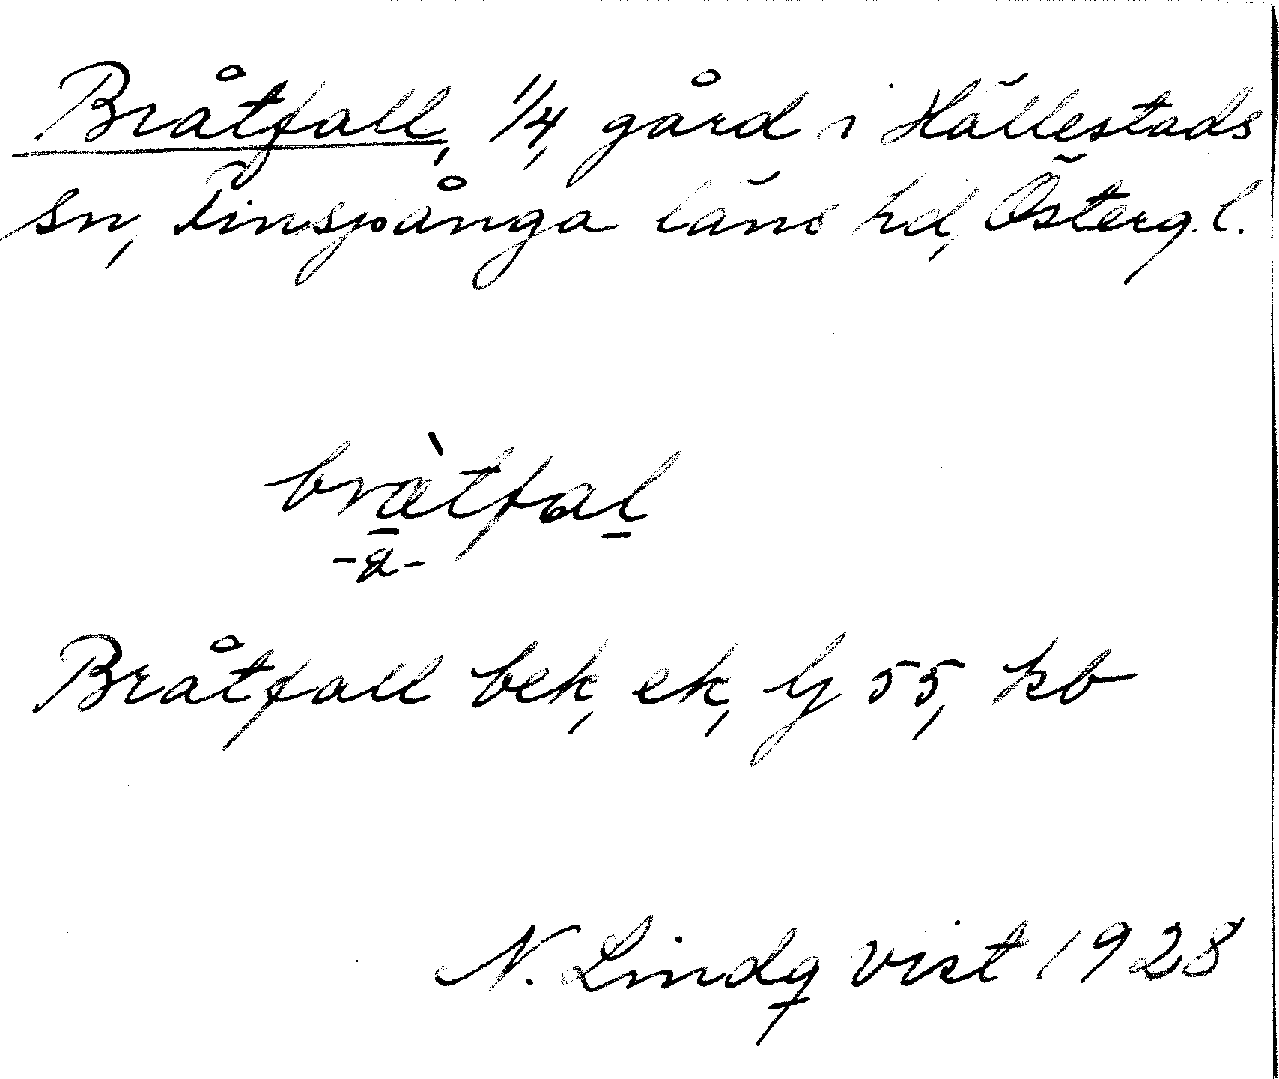 Bråtfall, 1/4, gård i Hällestads
sn, Finspånga läns hd, Östergl.
bràtfal
-a-
Bråtfall bek, ek, lj 55, kb
N. Lindqvist 1928